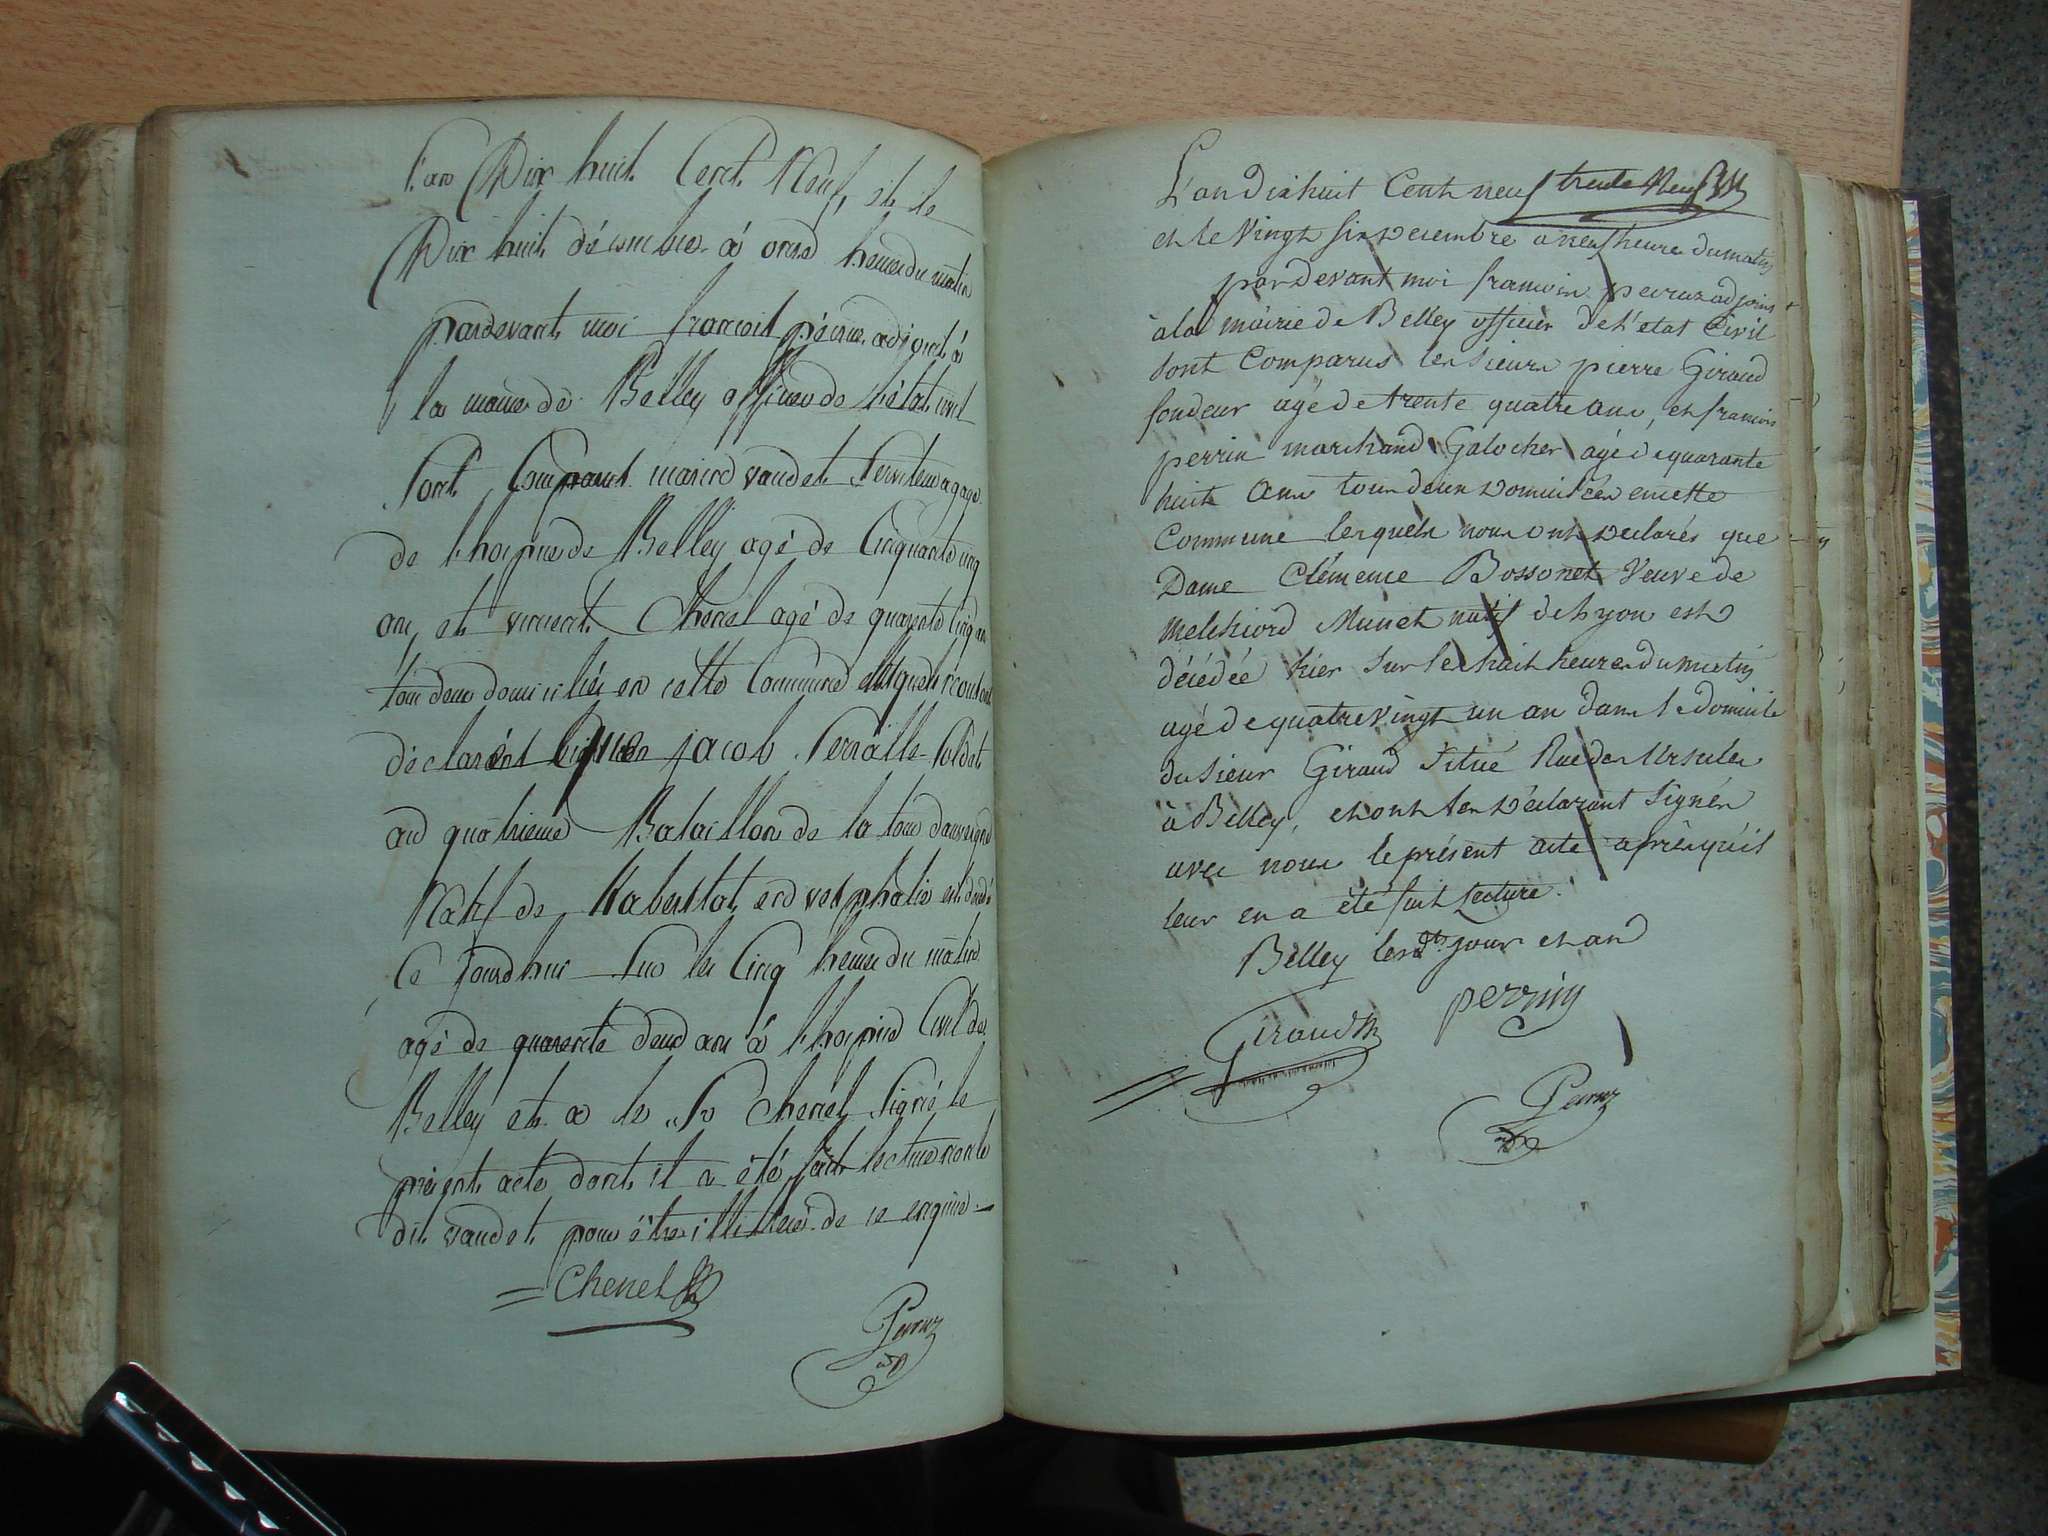 l'an Dix huit Cent Neuf, et le
Dix huit décembre à onze heures du matin
pardevant moi francois péruz adjoint à
la mairie de Belley officier de l'état civil
Sont Comparus marin vaudet Serviteur a gage
de l'hospice de Belley agé de Cinquante cinq
ans, et vincent Chenel agé de quarante Cinq ans
tous deux domiciliés en cette Commune lesquels nous ont
déclarés que jacob Soldat
au quatrieme Bataillon de la tour dauvergne
Natif de Haberstat en vestphalie est décédé
Ce jourdhui Sur les Cinq heures du matin
agé de quarente deux ans à l'hospice Civil de
Belley et a le Sr Chenel Signé le
présent acte dont il a été fait lecture non le
dit vaudet pour être illitteré de ce enquis.
Chenel
Peruz
adj
L'an dix huit Cent neuf trente Neuf
et le Vingt Six Decembre à neuf heure du matin
pardevant moi francois peruz adjoint
à la mairie de Belley officier de l'etat Civil
Sont Comparus les Sieurs pierre Giraud
fondeur agé de trente quatre ans, et francois
perrin marchand Galocher agé de quarante
huit ans tous deux Domiciliés en cette
Commune lesquels nous ont Déclarés que
Dame Clémence Bossonet Veuve de
Melchiord Munet natif de Lyon est
décédée hier Sur les huit heures du matin
agé de quatre vingt un an dans le domicile
du Sieur Giraud Situé Rue des Ursules
à Belley, et ont les Déclarant Signés
avec nous le présent acte après qu'il
leur en a été fait Lecture.
Belley les dts jour et an
perrin
Giraud
Peruz
adj